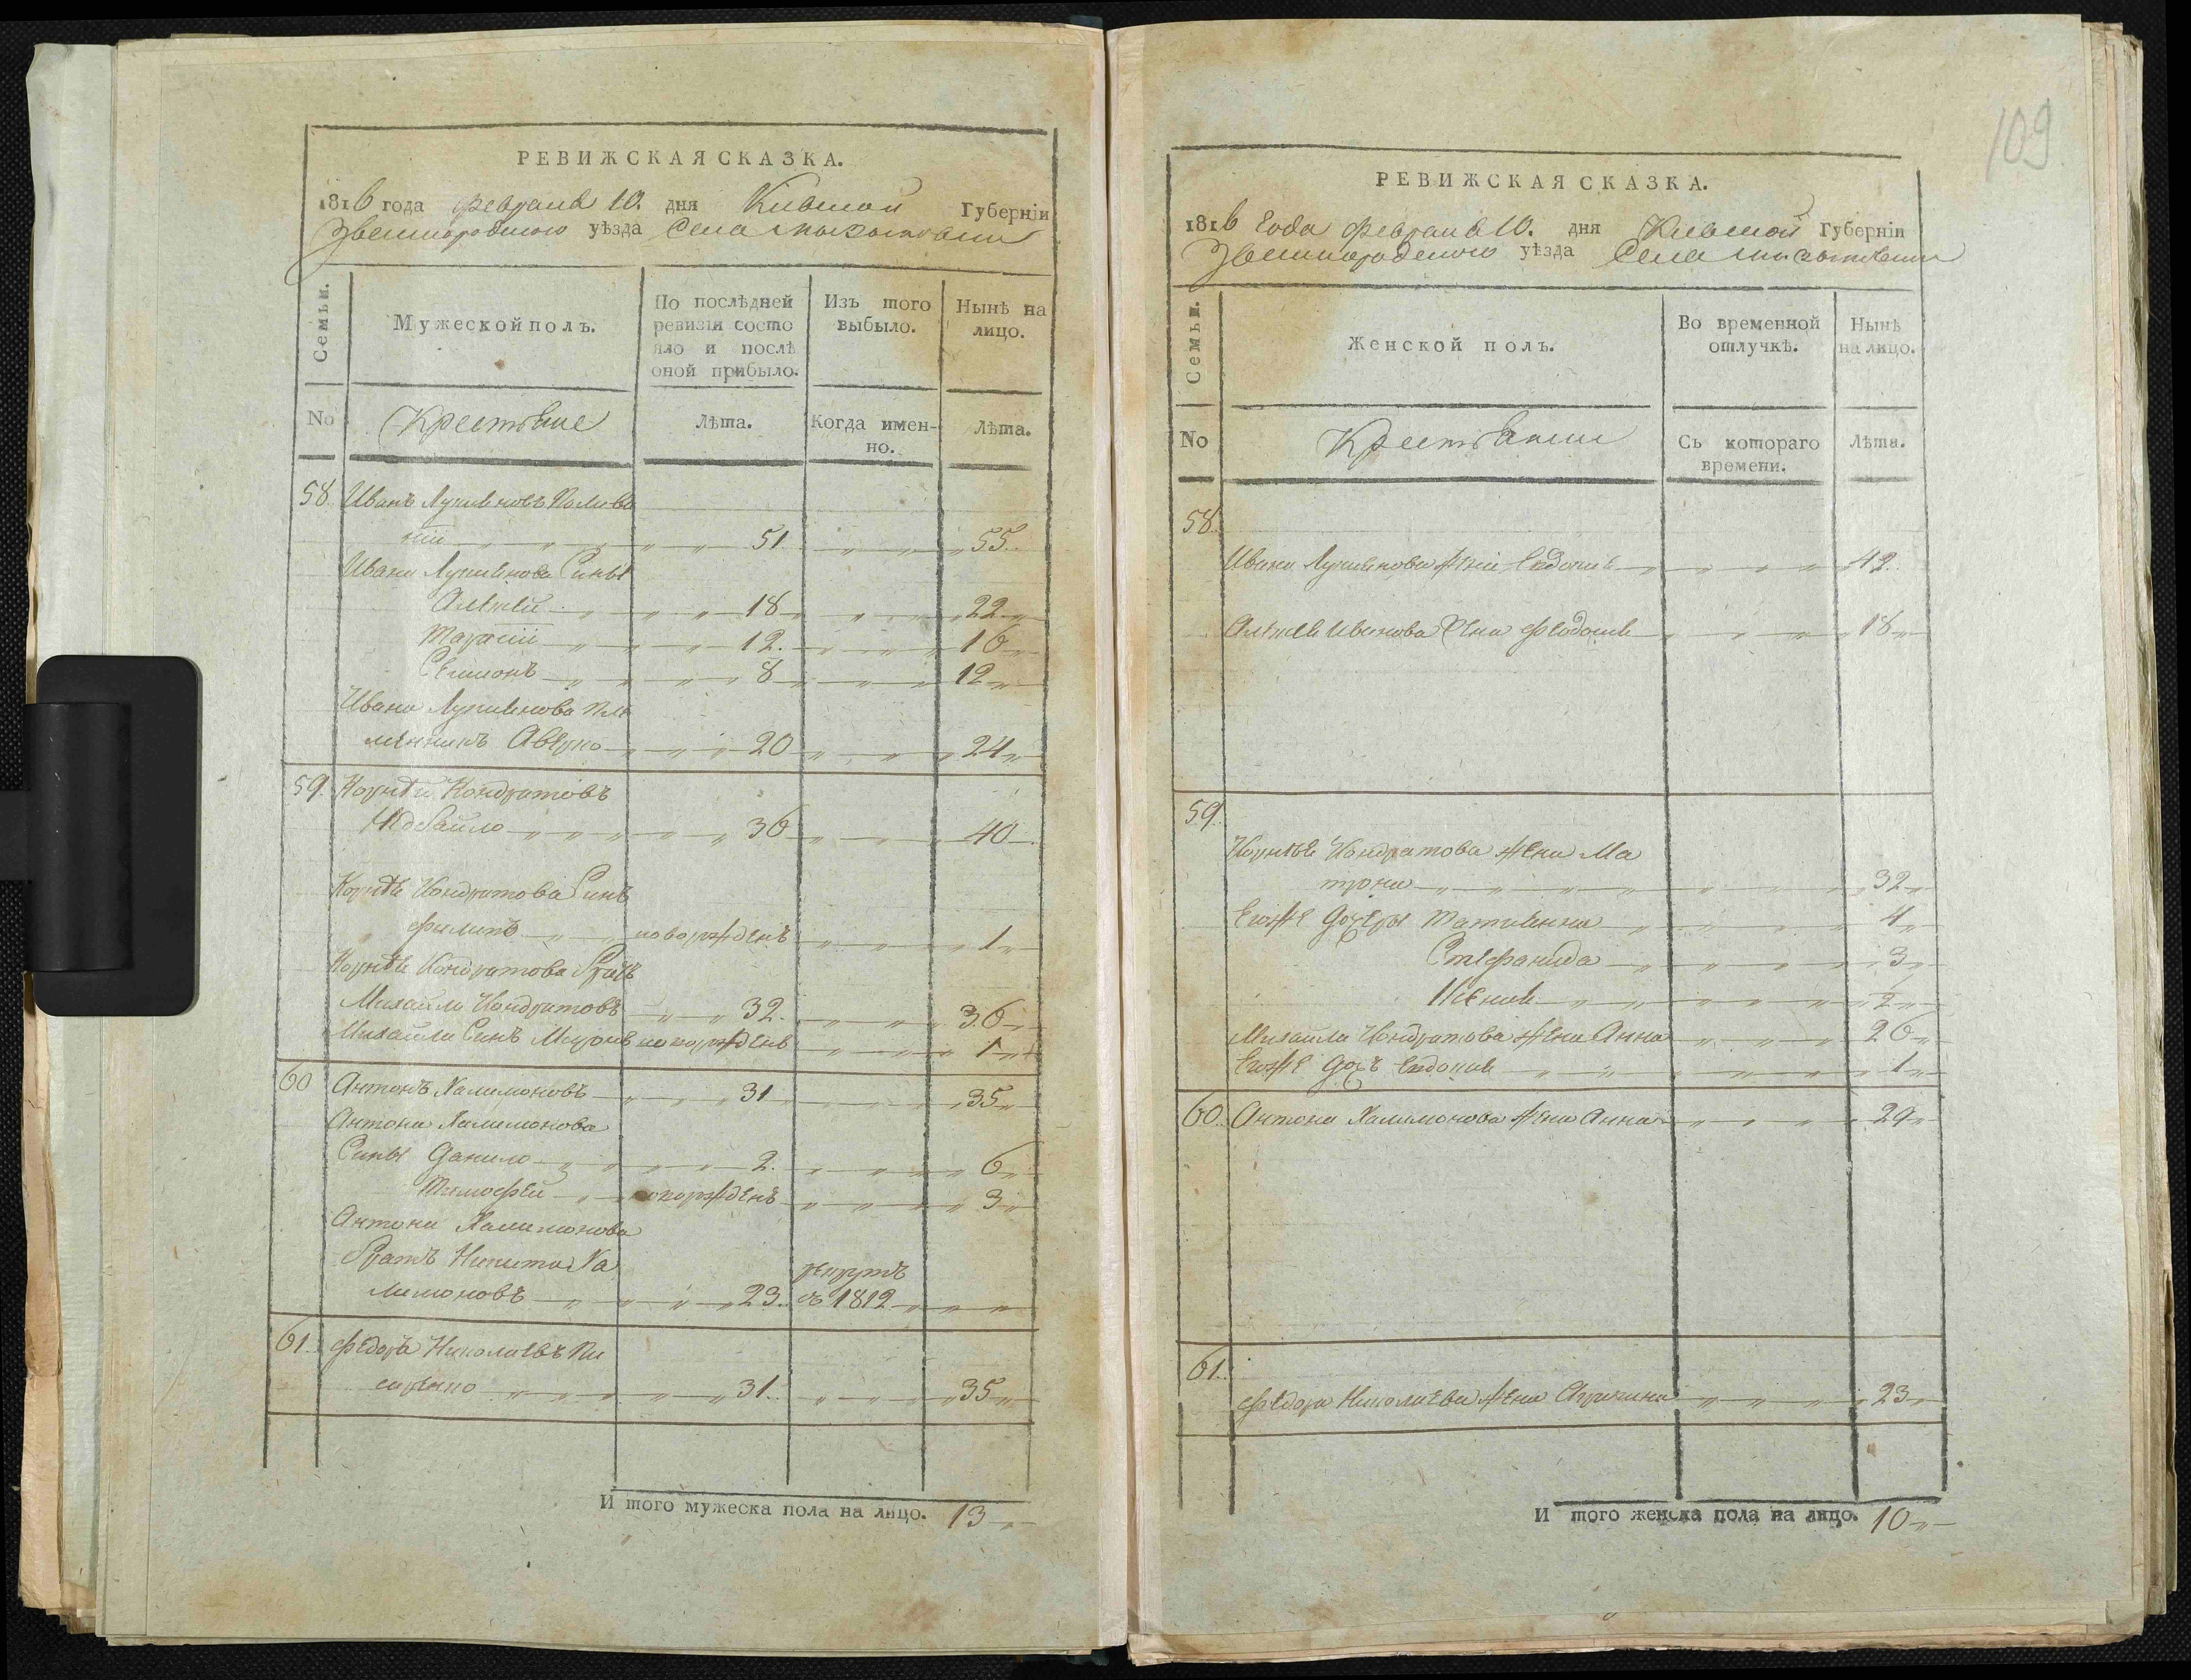 РЕВИЖСКАЯ СКАЗКА.
1816 года февраля 10. дня Киевской Губерніи
Звенигородского уѣзда Села
Семьи.
Мужеской полъ.
По послѣдней ревизіи состояло и послѣ оной прибыло.
Изъ того выбыло.
Нынѣ на лицо.
No
Крестьяне
Лѣта.
Когда именно.
Лѣта.
58. Иванъ Лукіяновъ
51. 55.
Ивана Лукіянова Сины
Алексѣй 18 22
Тарасій 12. 16
Семионъ 8 12
Ивана Лукіянова пле
менникъ Аверко 20 24
59. Корнѣй Кондратовъ
36 40
Корнѣя Кондратова Синъ
Филипъ новорожденъ 1
Корнѣя Кондратова братъ
Михайло Кондратовъ 32. 36
Михайли Синъ Миронъ новорожденъ 1
60 Антонъ Халимоновъ 31 35
Антона Халимонова
Сины Данило 2. 6
Тимофей новорожденъ 3
Антона Халимонова
братъ Никита Ха
лимоновъ 23. рекрутъ въ 1812
61. Федоръ Николаевъ Пи
саренко 31. 35
И того мужеска пола на лицо. 13
109
РЕВИЖСКАЯ СКАЗКА.
1816 Года февраля 10. дня Киевской Губерніи
Звенигородского уѣзда Села
Семьи.
Женской полъ.
Во временной отлучкѣ.
Нынѣ на лицо.
No
Крестьянки
Съ котораго времени.
Лѣта.
58.
Ивана Лукіянова жена Евдокія 42.
Алексѣя Иванова жена Феодосія 18
59.
Корнѣя Кондратова жена Ма
трона 32
Егоже дочеры Татіянна 4
Стефанида 3
Ксенія 2
Михайла Кондратова жена Анна 26
Егоже дочъ Евдокія 1
60. Антона Халимонова жена Анна 29
61.
Федора Николаева жена 23
И того женска пола на лицо. 10